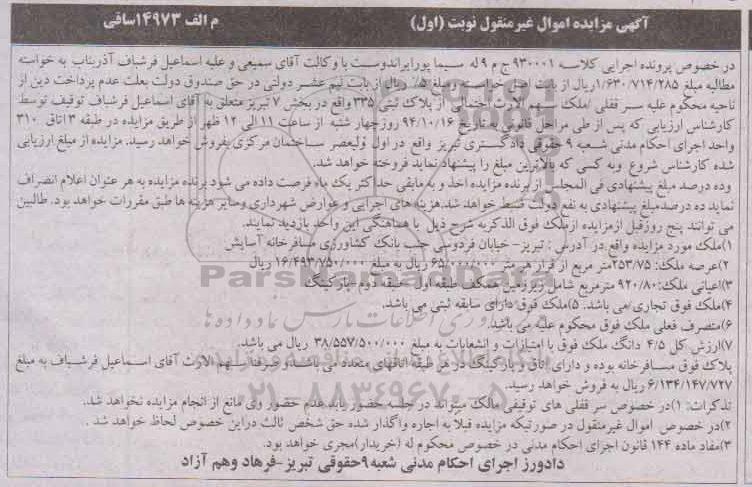 آگهی مزایده اموال غیرمنقول نوبت (اول) م الف ۱۴۹۷۳ساقی
در خصوص پرونده اجرایی کلاسه ۹۳۰۰۰۱ج م ۹ له سیما پورایراندوست با وکالت آقای سمیعی و علیه اسماعیل فرشباف آذریناب به خواسته
مطالبه مبلغ ۱/۶۳۰/۷۱۴/۲۸۵ریال از بابت اصل خواسته ومبلغ ۵٪ ریال از بابت نیم عشر دولتی در حق صندوق دولت بعلت عدم پرداخت دین از
ناحیه محکوم علیه سر قفلی /ملک سهم الارث احتمالی از پلاک ثبتی ۳۳۵ واقع در بخش ۷ تبریز متعلق به آقای اسماعیل فرشباف توقیف، توسط
کارشناس ارزیابی که پس از طی مراحل قانونی به تاریخ ۹۴/۱۰/۱۶ روزچهار شنبه از ساعت ۱۱ الی ۱۲ ظهر از طریق مزایده در طبقه ۳ اتاق ۳۱۰
واحد اجرای احکام مدنی شعبه ۹ حقوقی دادگستری تبریز واقع در اول ولیعصر ساختمان مرکزی بفروش خواهد رسید. مزایده از مبلغ ارزیابی
شده کارشناس شروع وبه کسی که بالاترین مبلغ را پیشنهاد نماید فروخته خواهد شد.
وده درصد مبلغ پیشنهادی فی المجلس از برنده مزایده اخذ و به مابقی حداکثر یک ماه فرصت داده می شود برنده مزایده به هر عنوان اعلام انصراف
نماید ده درصدمبلغ پیشنهادی به نفع دولت ضبط خواهد شد.هزینه های اجرایی و عوارض شهرداری وسایر هزینه ها طبق مقررات خواهد بود. طالبین
می توانند پنج روزقبل ازمزایده ازملک فوق الذکربه شرح ذیل با هماهنگی این واحد بازدید نمایند.
۱)ملک مورد مزایده واقع در آدرس : تبریز- خیابان فردوسی جنب بانک کشاورزی مسافرخانه آسایش
۲)عرصه ملک: ۲۵۳/۷۵متر مربع از قرار هر متر ۶۵/۰۰۰/۰۰۰ ریال به مبلغ ۱۶/۴۹۳/۷۵۰/۰۰۰ ریال
۳)اعیانی ملک: ۹۲۰/۸۰ مترمربع شامل زیرزمین همکف طبقه اول، طبقه دوم -پارکینگ
۴)ملک فوق تجاری می باشد. ۵)ملک فوق دارای سابقه ثبتی می باشد.
۶)متصرف فعلی ملک فوق محکوم علیه می باشد.
۷)ارزش کل ۴/۵ دانگ ملک فوق با امتیازات و انشعابات به مبلغ ۳۸/۵۵۷/۵۰۰/۰۰۰ ریال می باشد.
پلاک فوق مسافرخانه بوده و دارای اتاق و پارکینگ در هر طبقه اتاقهای متعدد می باشد.و صرفا سهم الارث آقای اسماعیل فرشباف به مبلغ
۶/۱۳۴/۱۴۷/۷۲۷ ریال به فروش خواهد رسید.
تذکرات: ۱)در خصوص سر قفلی های توقیفی مالک میتواند در جلسه حضور یابد.عدم حضور وی مانع از انجام مزایده نخواهد شد.
۲)در خصوص اموال غیرمنقول در صورتیکه مزایده قبلاً به اجاره واگذار شده حق شخص ثالث دراین خصوص لحاظ خواهد شد .
۳)مفاد ماده ۱۴۴ قانون اجرای احکام مدنی در خصوص محکوم له (خریدار)مجری خواهد بود.
دادورز اجرای احکام مدنی شعبه ۹حقوقی تبریز-فرهاد وهم آزاد
ParsNamadData
۰۲۱-۸۸۳۴۹۶۷۰-۵